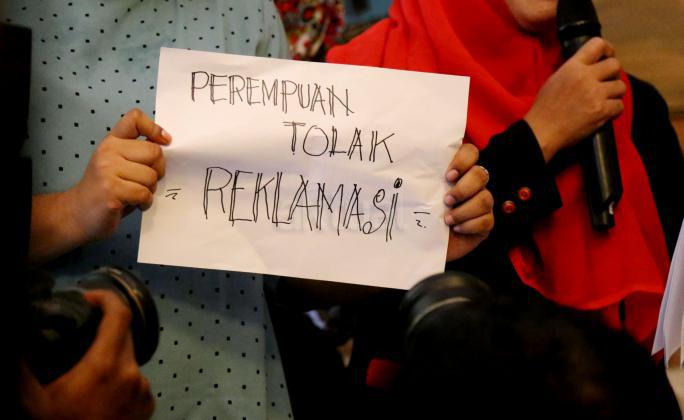 PEREMPUAN
TOLAK
= REKLAMASi =